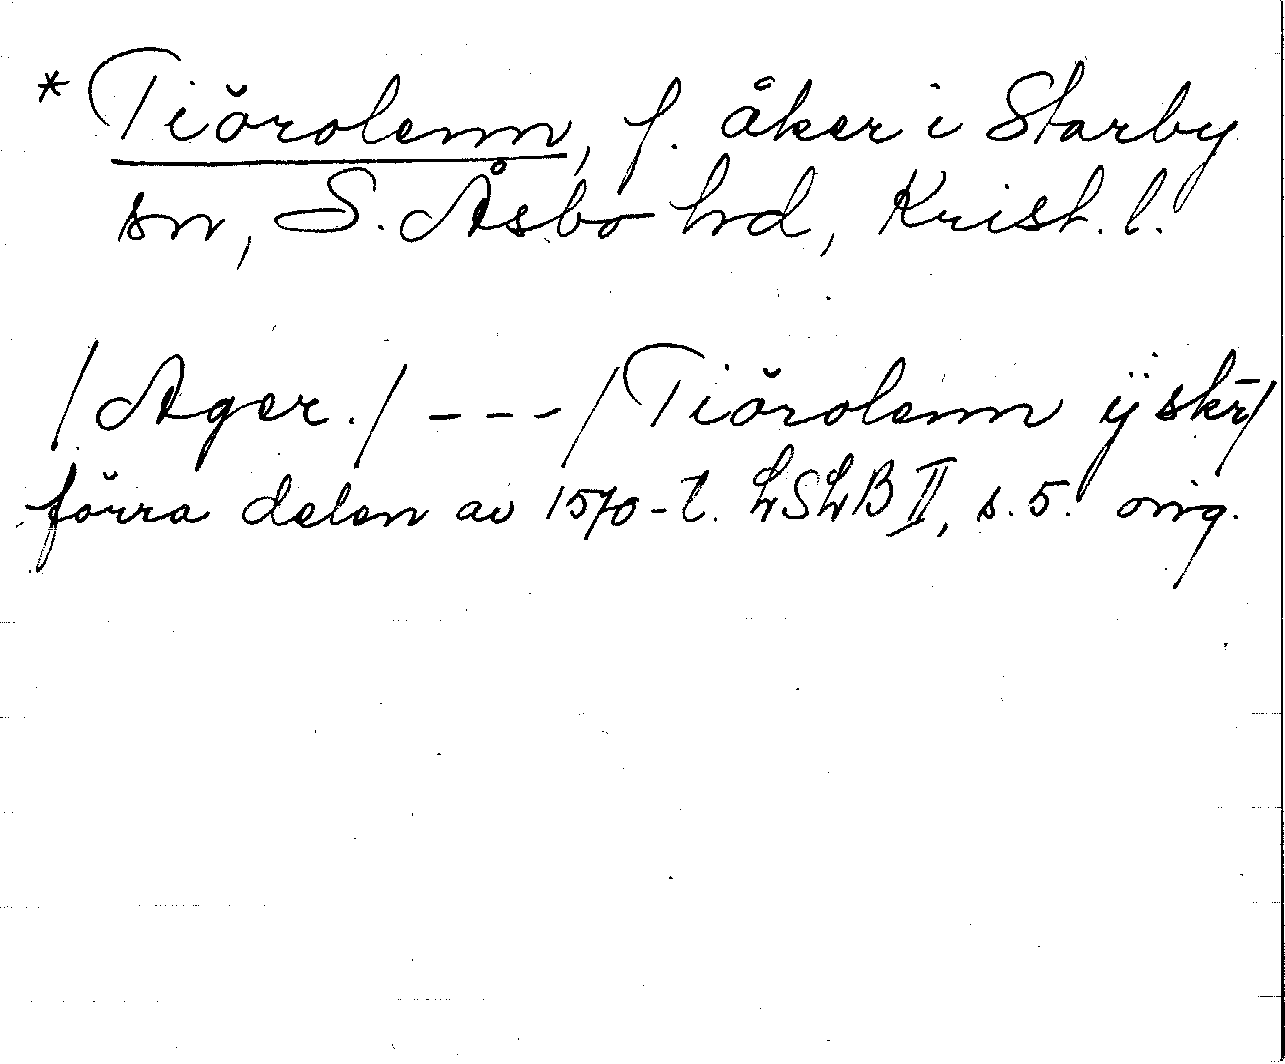 * Tiörolenn, f. åker i Starby
sn, S. Åsbo hd, Krist. l.
/Ager./ --- /Tiörolenn ÿ skr̄/
förra delen av 1570-t. LSLB II, s. 5. orig.